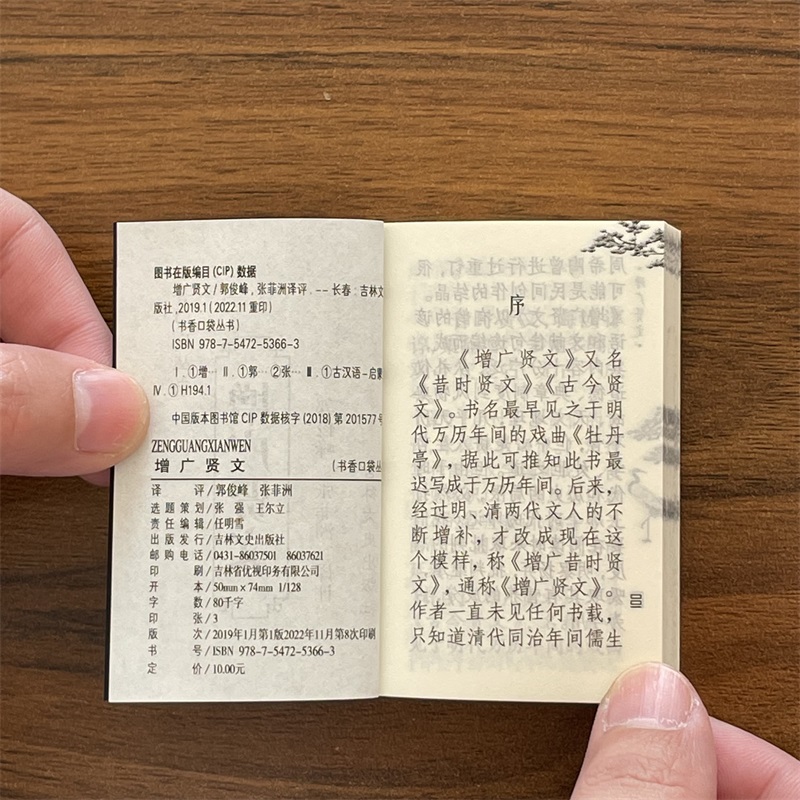 图书在版编目(CIP)数据
增广贤文/郭俊峰,张菲洲译评.--长春:吉林文
版社,2019.1(2022.11重印)
(书香口袋丛书)
ISBN 978-7-5472-5366-3
Ⅰ.①增… Ⅱ.①郭…②张… Ⅲ.①古汉语-启蒙
Ⅳ.①H194.1
中国版本图书馆CIP数据核字(2018)第201577号
ZENGGUANGXIANWEN
增广贤文 (书香口袋丛
译 评/郭俊峰 张菲洲
选题策划/张 强 王尔立
责任编辑/任明雪
出版发行/吉林文史出版社
邮购电话/0431-86037501 86037621
印 刷/吉林省优视印务有限公司
开 本/50mm×74mm 1/128
字 数/80千字
印 张/3
版 次/2019年1月第1版2022年11月第8次印刷
书 号/ISBN 978-7-5472-5366-3
定 价/10.00元
序
《增广贤文》又名
《昔时贤文》《古今贤
文》。书名最早见之于明
代万历年间的戏曲《牡丹
亭》,据此可推知此书最
迟写成于万历年间。后来,
经过明、清两代文人的不
断增补,才改成现在这
个模样,称《增广昔时贤
文》,通称《增广贤文》。
作者一直未见任何书载,
只知道清代同治年间儒生
001